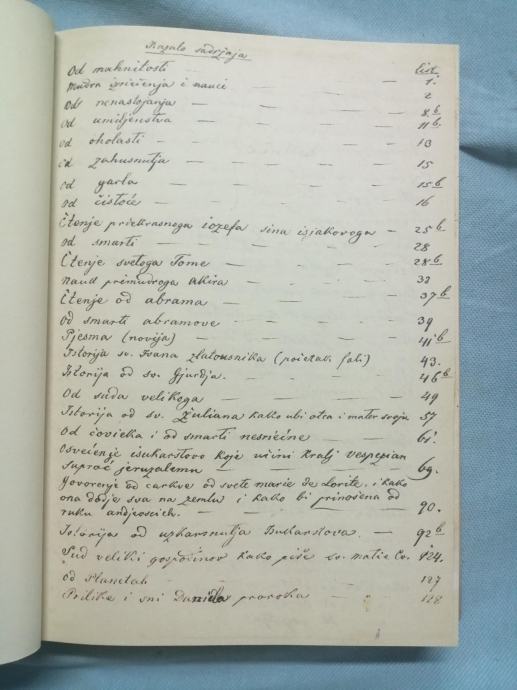 Kazalo sadržaja
list
Od mahnitosti — — — 1.
Mudra izrečenja i nauci — — 2
Od nenastojanja — — — 8.b
od umiljenstva — — — 11b.
od oholasti — — — 13
od zahusnutja — — — 15
od garla — — — 15b
od čistoće — — — 16
Čtenje priekrasnoga iozefa sina isjakovoga — 25b
od smarti — — — 28
Čtenje svetoga Tome — — 28b
nauci premudroga akira — — 33
Čtenje od abrama — — — 37b
od smarti abramove — — 39
Pjesma (novija) — — — 41b
Istorija sv. Ivana zlatousnika (početak fali) 43.
Istorija od sv. Gjurdja. — — 46b
Od suda velikoga — — 49
Istorija od sv. Žuliana kako ubi otca i mater svoju 57
Od čovieka i od smarti nesrićne — 61.
Osvećenje isukarstovo koje učini kralj vespezian
suproć jeruzalemu — — — 69.
Govorenje od carkve od svete marie de Lorite, i kako
ona dojde sva na zemlu i kako bi prinošena od
ruku andjeoscih. — — — 90.
Istorija od uskarsnutja Isukarstova. — 92b
Sud veliki gospodinov kako piše sv. matie Cv. 124.
Od Planetah — — — 127
Prilike i sni Daniela proroka — 128